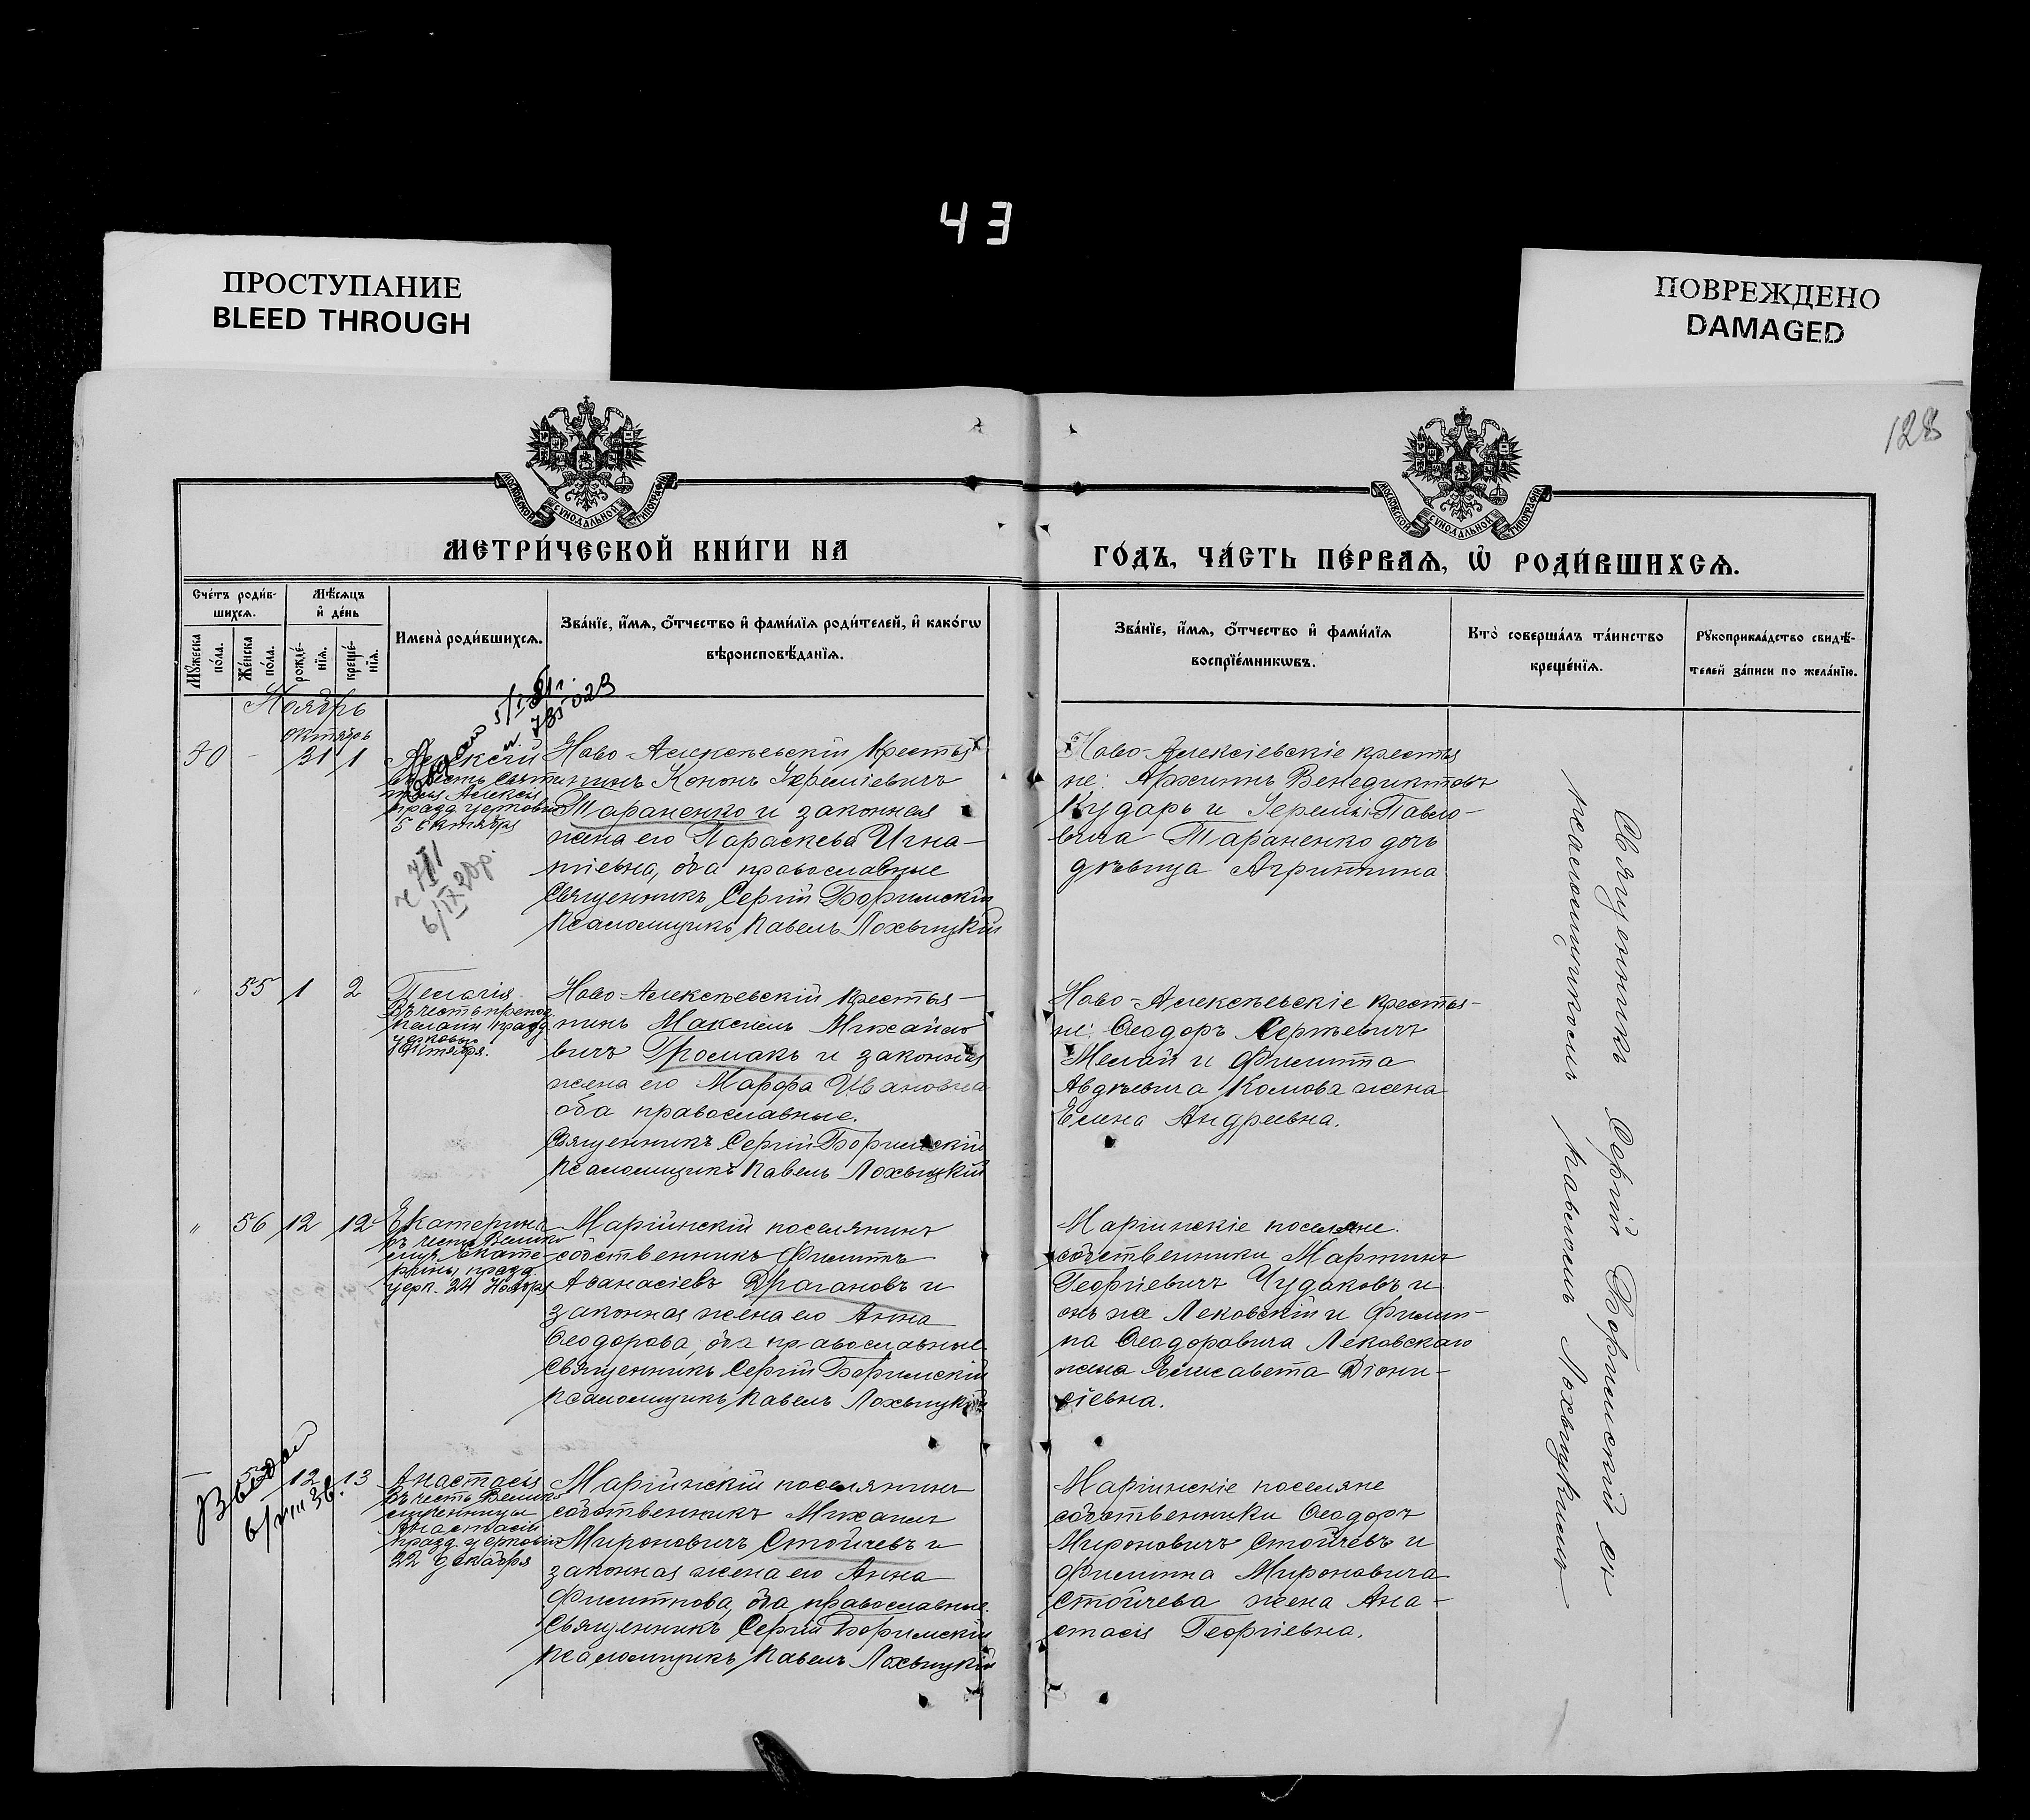 43
ПРОСТУПАНИЕ
BLEED THROUGH
ПОВРЕЖДЕНО
DAMAGED
128
МОСКОВСКОЙ СѴНОДАЛЬНОЙ ТИПОГРАФІИ
МОСКОВСКОЙ СѴНОДАЛЬНОЙ ТИПОГРАФІИ
МЕТРИ́ЧЕСКОЙ КНИ́ГИ НА
ГО́ДЪ, ЧА́СТЬ ПЕ́РВАѦ, Ѡ҆ РОДИ́ВШИХСѦ.
Сче́тъ роди́в-
шихсѧ.
Мѣ́сѧцъ
и҆ де́нь
Мꙋ́жеска
по́ла.
Же́нска
по́ла.
рожде́-
нїѧ.
креще́-
нїѧ.
Имена̀ роди́вшихсѧ.
Зва́нїе, и҆́мѧ, ѻ҆́тчество и҆ фами́лїѧ роди́телей, и҆ како́гѡ
вѣроисповѣ́данїѧ.
Зва́нїе, и҆́мѧ, ѻ҆́тчество и҆ фами́лїѧ
воспрїе́мникѡвъ.
Кто̀ соверша́лъ та́инство
креще́нїѧ.
Рꙋкоприкла́дство свидѣ́-
телей за́писи по жела́нїю.
Ноябрь
октябрь
31 1
Алексій
празд. церковью
5 октября
Ново-Алексѣевскій крестья
нинъ Кононъ Іереміевичъ
Тараненко и законная
жена его Параскева Игна-
тіевна, оба православные
Священникъ Сергій Боримскій
Псаломщикъ Павелъ Лохвицкій
Ново-Алексіевскіе крестья
не: Архипъ Венедиктовъ
Кударь и Іереміи Павло-
вича Тараненко дочь
дѣвица Агриппина
55 1 2
Пелагія
Въ честь препод.
Пелагіи празд.
церковью
8 октября.
Ново-Алексѣевскій крестья-
нинъ Максимъ Михайло
вичъ Громакъ и законная
жена его Марфа Ивановна
оба православные.
Священникъ Сергій Боримскій
Псаломщикъ Павелъ Лохвицкій
Ново-Алексѣевскіе крестья-
не: Ѳеодоръ Сергѣевичъ
и Филиппа
Авдѣевича Комова жена
Елена Андреевна.
" 56 12 12
Екатерина
въ честь Велико
муч. Екате-
рины, празд.
церк. 24 Ноября
Маріинскій поселянинъ
собственникъ Филиппъ
Аѳанасіевъ Драгановъ и
законная жена его Анна
Ѳеодорова, оба православные
Священникъ Сергій Боримскій
Псаломщикъ Павелъ Лохвицкій
Маріинскіе поселяне.
собственники Мартинъ
Георгіевичъ Чудаковъ и
онъ же Лековскій и Филип-
па Ѳеодоровича Лековскаго
жена Елисавета Діони-
сіевна.
12 13
Анастасія
Въ честь Велико
мученницы
Анастасіи
празд. церковью
22 декабря
Маріинскій поселянинъ
собственникъ Михаилъ
Мироновичъ Стойчевъ и
законная жена его Анна
Филиппова, оба православные.
Священникъ Сергій Боримскій
Псаломщикъ Павелъ Лохвицкій
Маріинскіе поселяне
собственники Ѳеодоръ
Мироновичъ Стойчевъ и
Филиппа Мироновича
Стойчева жена Ана-
стасія Георгіевна.
Священникъ Сергій Боримскій съ
псаломщикомъ Павломъ Лохвицкимъ